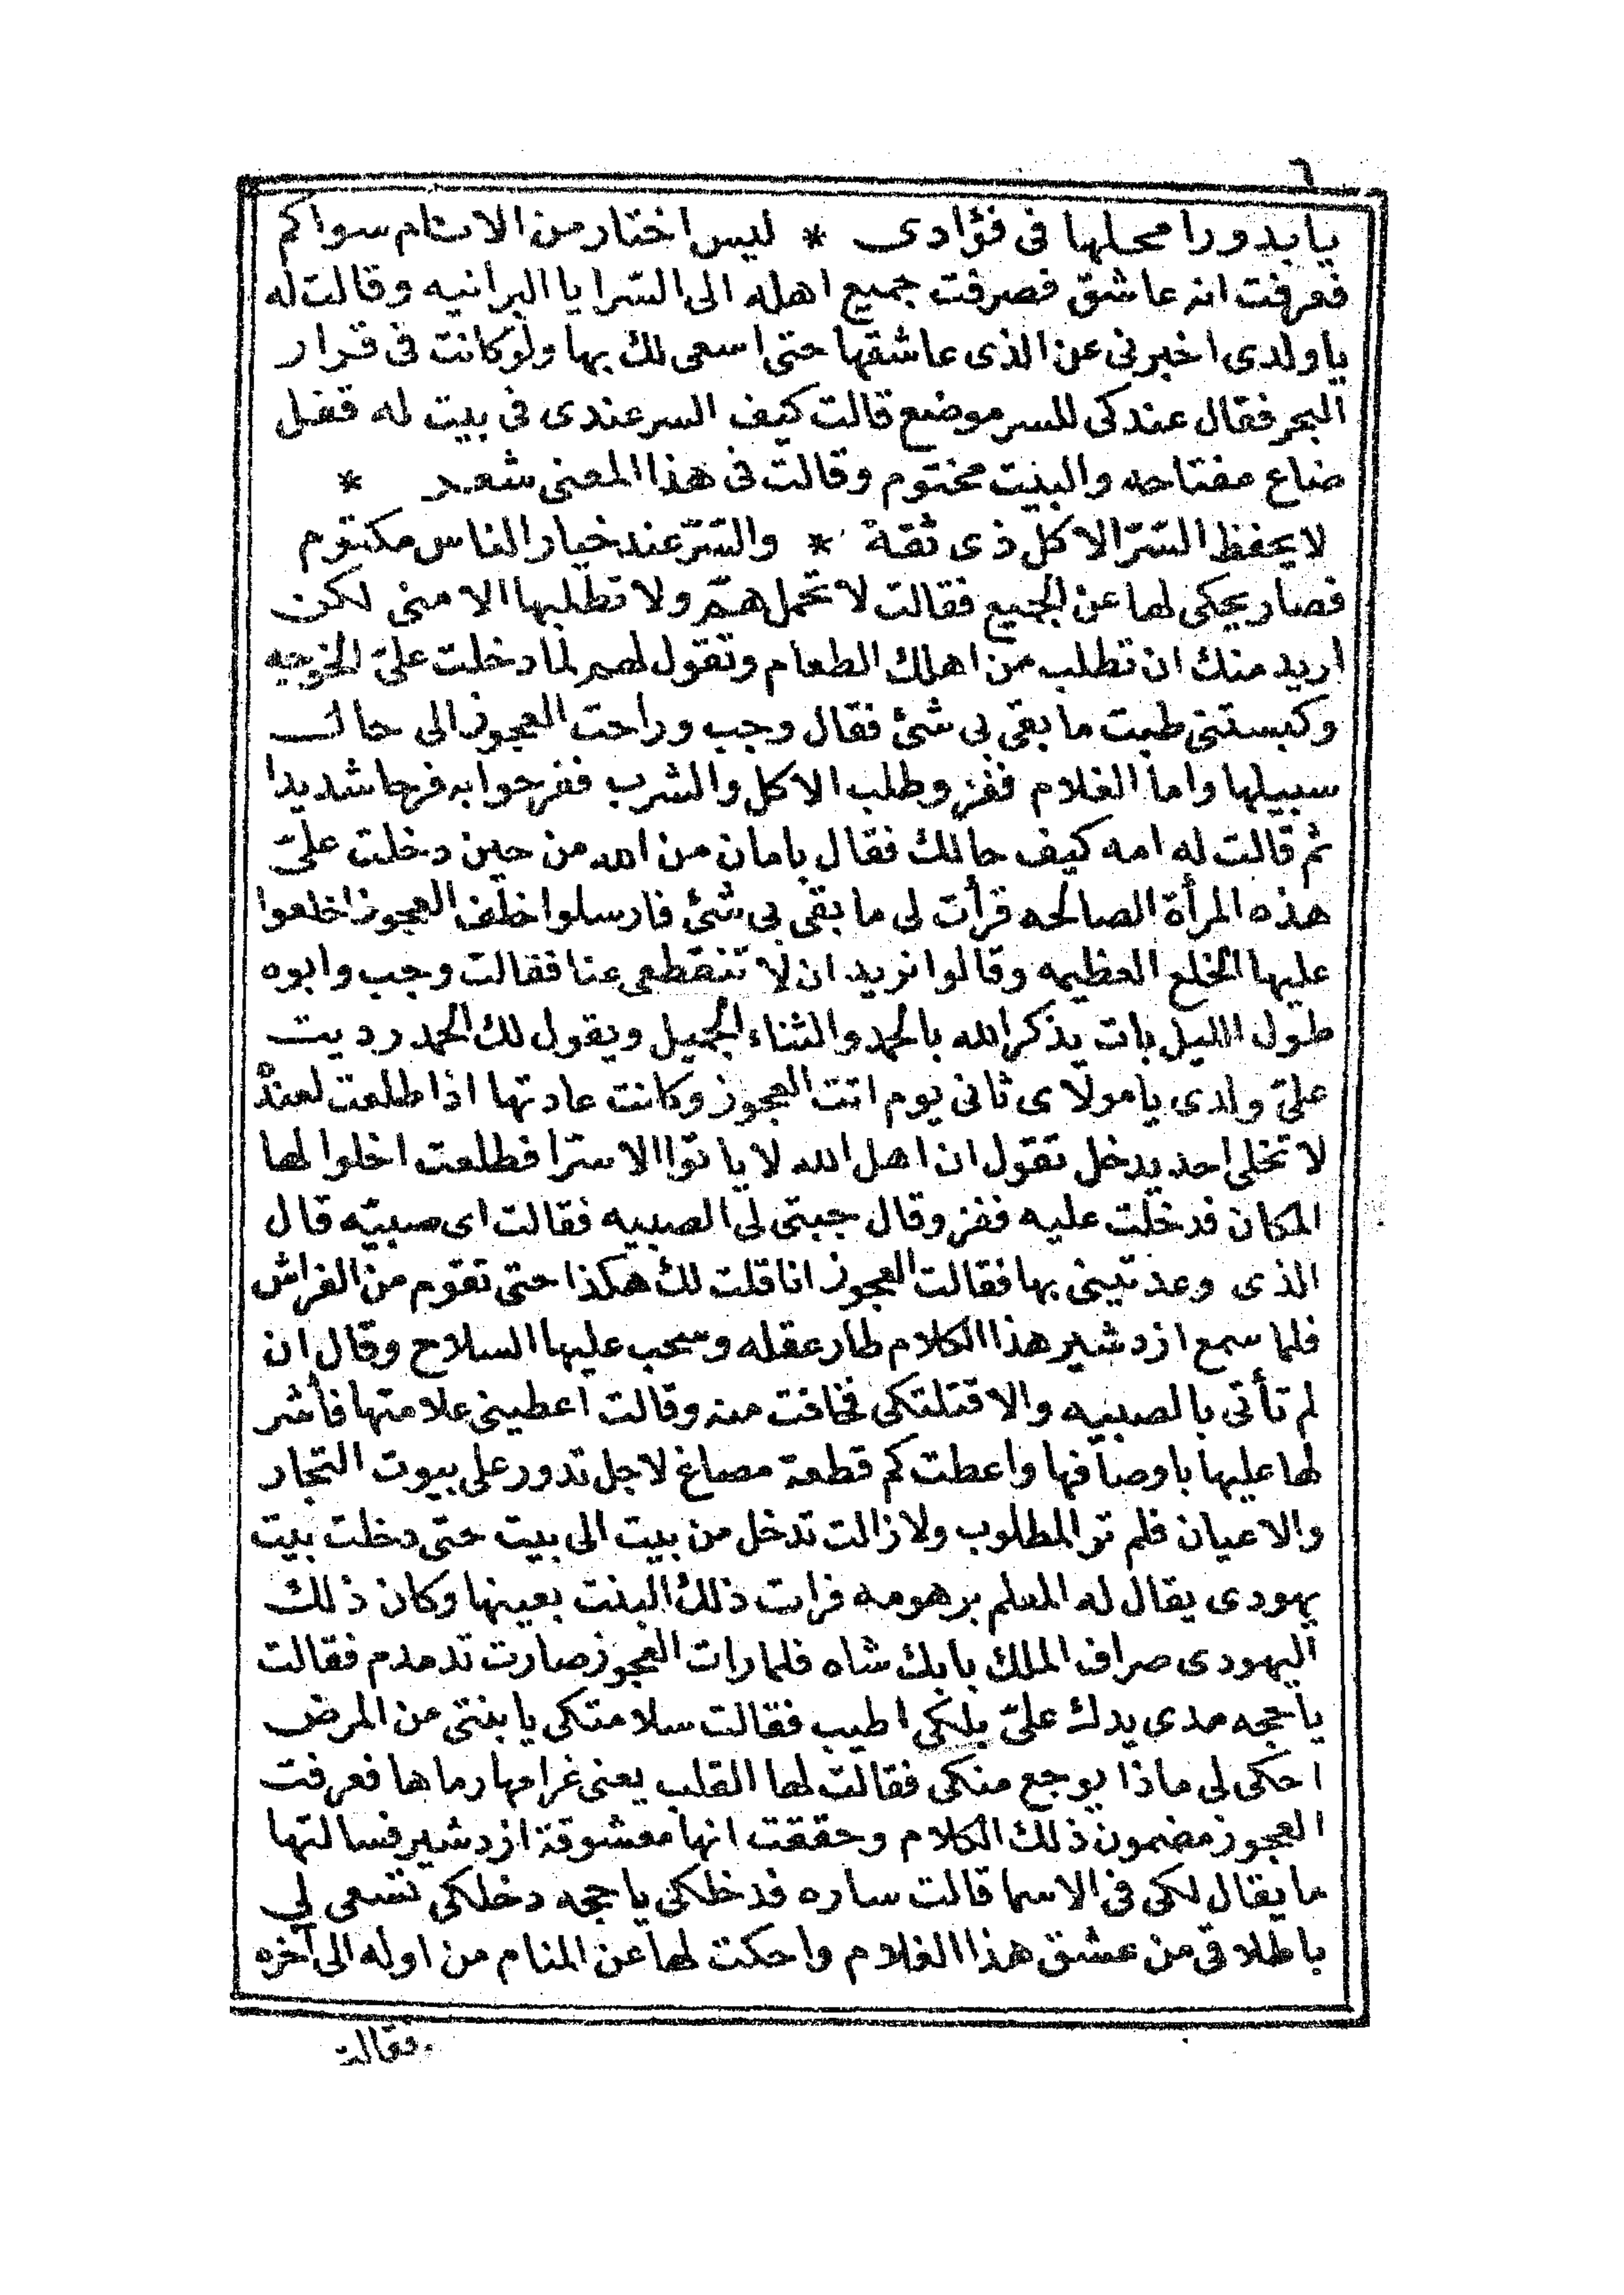 ٦
يا بدورا محلها فى فؤادى * ليس اختار من الانام سواكم
فعرفت انه عاشق فصرفت جميع اهله الى السرايا البرانيه وقالت له
يا ولدى اخبرنى عن الذى عاشقها حتى اسعى لك بها ولو كانت فى قرار
البحر فقال عندكى للسر موضع قالت كيف السر عندى فى بيت له قفل
ضاع مفتاحه والبيت مختوم وقالت فى هذا المعنى شعر *
لا يحفظ السرّ الا كل ذى ثقة * والسرّ عند خيار الناس مكتوم
فصار يحكى لها عن الجميع فقالت لا تحمل همّ ولا تطلبها الا منى لكن
اريد منك ان تطلب من اهلك الطعام وتقول لهم لما دخلت علىّ الخوجيه
وكبستنى طبت ما بقى بى شئ فقال وجب وراحت العجوز الى حال
سبيلها واما الغلام ففز وطلب الاكل والشرب ففرحوا به فرحا شديدا
ثم قالت له امه كيف حالك فقال بامان من الله من حين دخلت علىّ
هذه المرأة الصالحه قرأت لى ما بقى بى شئ فارسلوا خلف العجوز اخلعوا
عليها الخلع العظيمه وقالوا نريد ان لا تنقطعى عنا فقالت وجب وابوه
طول الليل بات يذكر الله بالحمد والثناء الجميل ويقول لك الحمد رديت
علىّ ولدى يا مولاى ثانى يوم اتت العجوز وكانت عادتها اذا طلعت لعنده
لا تخلى احد يدخل تقول ان اهل الله لا ياتوا الا سترا فطلعت اخلوا لها
المكان فدخلت عليه ففز وقال جبتى لى الصبيه فقالت اى صبيّه قال
الذى وعدتينى بها فقالت العجوز انا قلت لك هكذا حتى تقوم من الفراش
فلما سمع ازدشير هذا الكلام طار عقله وسحب عليها السلاح وقال ان
لم تأتى بالصبيه والا قتلتكى فخافت منه وقالت اعطينى علامتها فأشر
لها عليها باوصافها واعطت كم قطعة مصاغ لاجل تدور على بيوت التجار
والاعيان فلم تر المطلوب ولا زالت تدخل من بيت الى بيت حتى دخلت بيت
يهودى يقال له المعلم برهومه فرات ذلك البنت بعينها وكان ذلك
اليهودى صراف الملك بابك شاه فلما رات العجوز صارت تدمدم فقالت
يا حجه مدى يدك علىّ بلكى اطيب فقالت سلامتكى يا بنتى من المرض
احكى لى ماذا يوجع منكى فقالت لها القلب يعنى غرامها رماها فعرفت
العجوز مضمون ذلك الكلام وحققت انها معشوقة ازدشير فسالتها
ما يقال لكى فى الاسما قالت ساره فدخلكى يا حجه دخلكى تسعى لى
باطلاقى من عشق هذا الغلام واحكت لها عن المنام من اوله الى آخره
فقالت